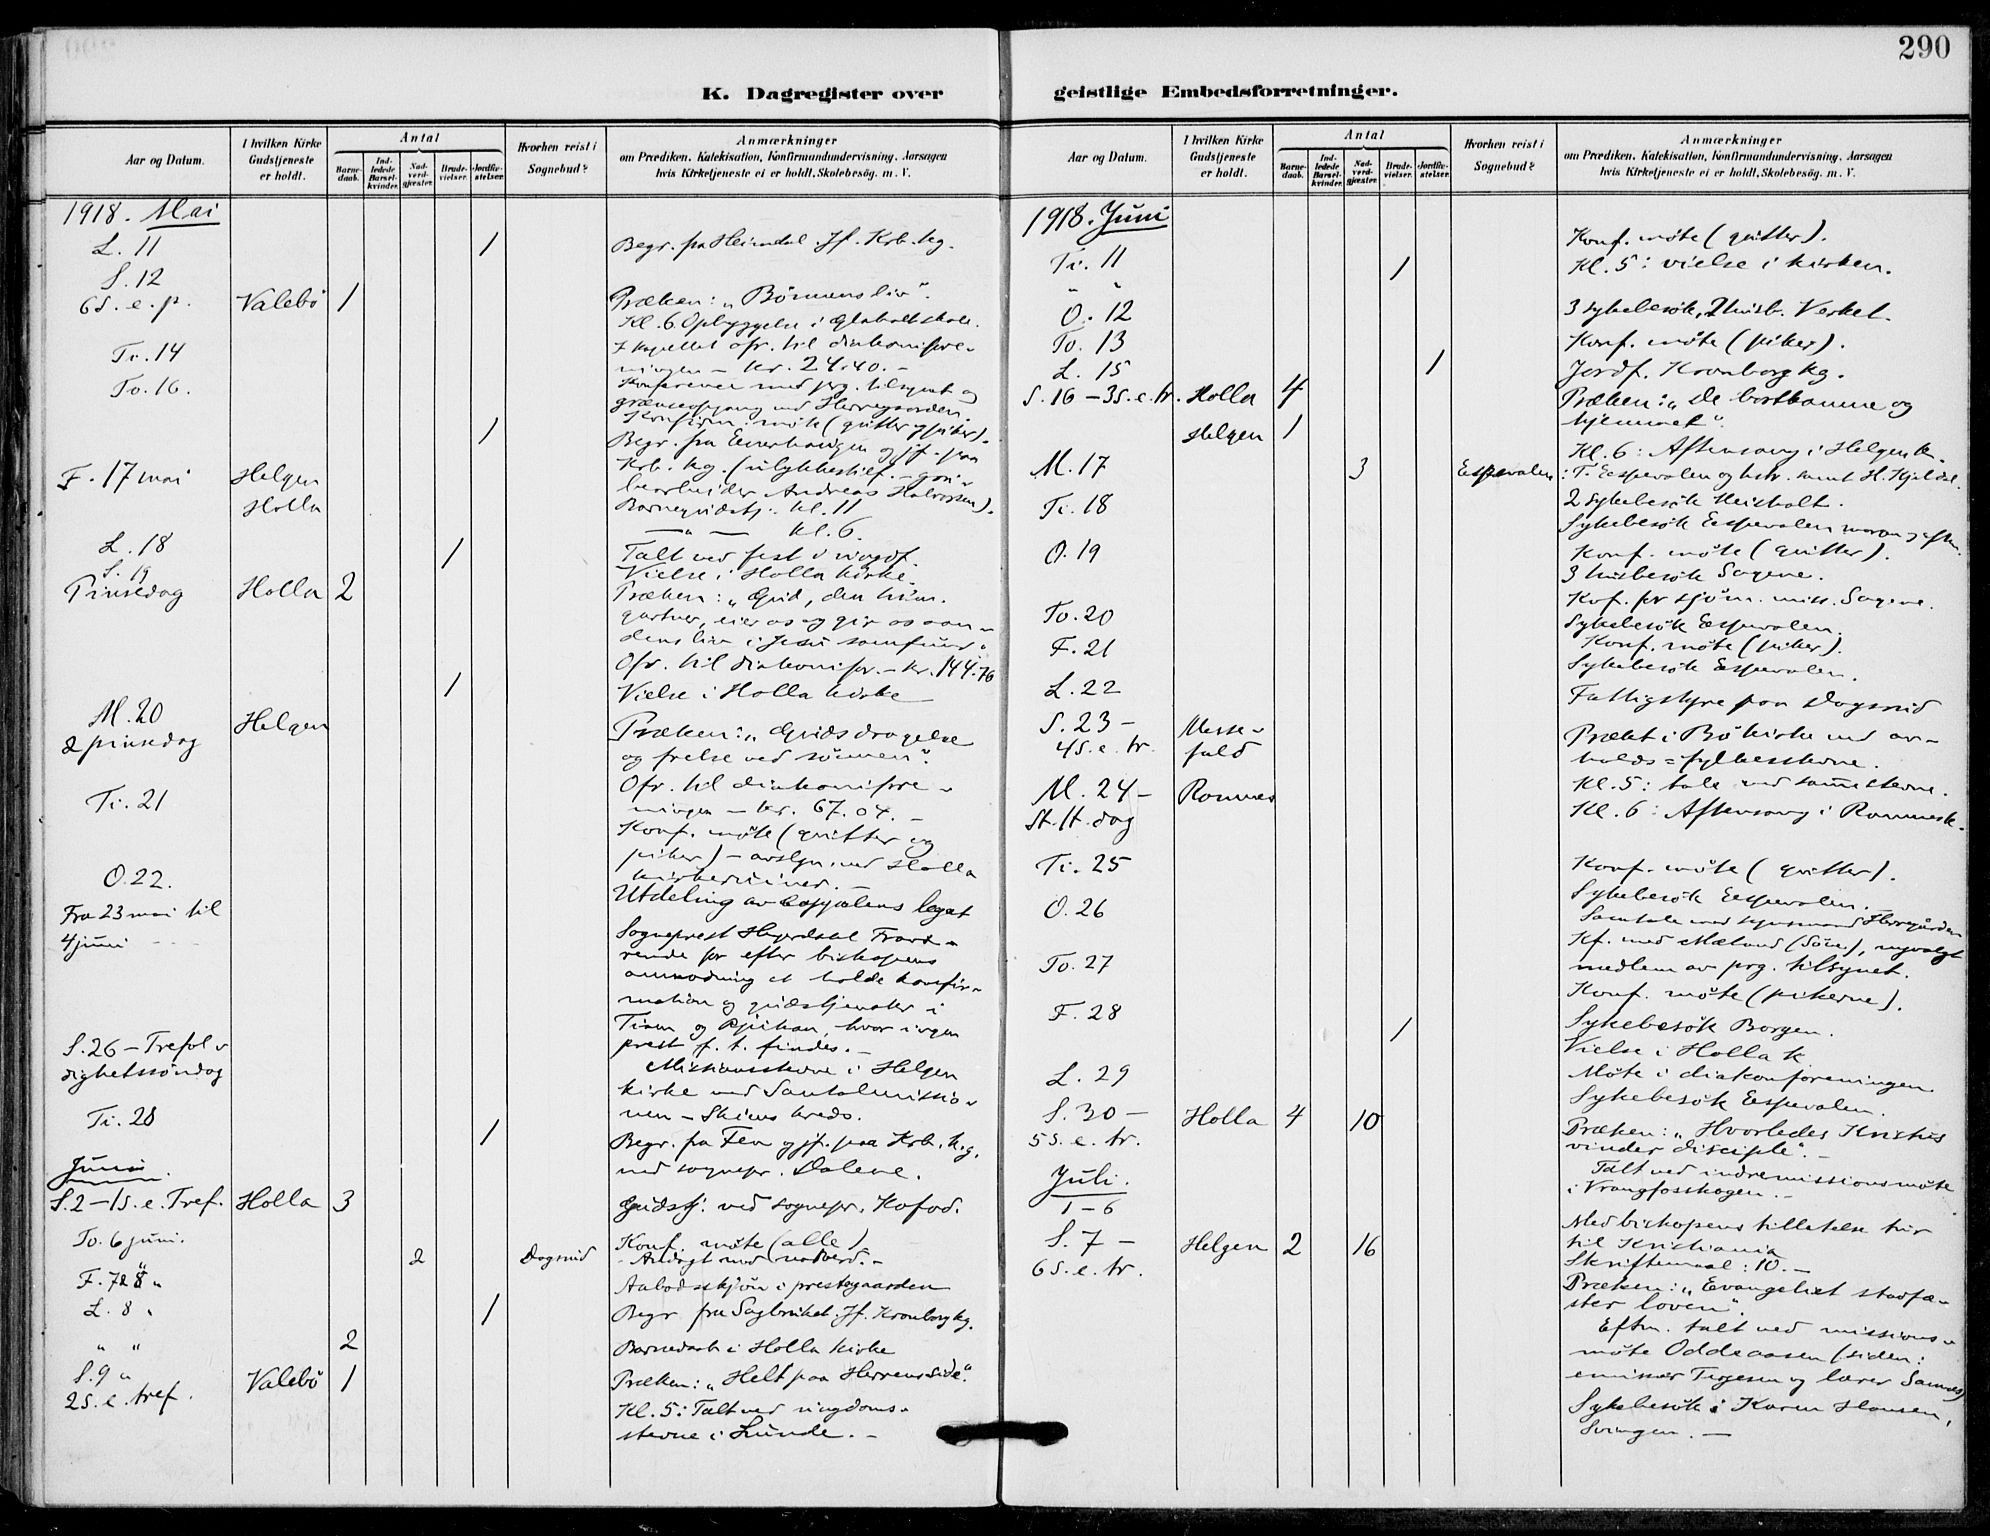 290
K. Dagregister over
geistlige Embedsforretninger.
Aar og Datum.
I hvilken Kirke Gudstjeneste er holdt.
Antal
Barne-daab.
Ind-ledede Barsel-kvinder.
Nad-verd-gjæster.
Brude-vielser.
Jordfæ-stelser.
Hvorhen reist i Sognebud?
Anmærkninger
om Prædiken, Katekisation, Konfirmandundervisning, Aarsagen
hvis Kirketjeneste ei er holdt, Skolebesøg. m. V.
1918. Mai
L. 11 1 Begr. fra Heimdal. Jf. Krb. kg.
S. 12
6 S. e. p. Valebö 1 Præken: "Bönnens liv".
Kl. 6 Opbyggelse i skole.
Ti. 14 I kapellet ofr. til diakonifore-
ningen - kr. 24.40. -
To. 16. Konference med prg. tilsynet og
grænseopgang ved Herregaarden.
Konfirm. möte (gutter og piker).
1 Begr. fra og jf. paa
Krb. kg. (ulykkestilf. -
bearbeider Andreas Halvorsen).
F. 17 mai Helgen Barnegudstj. kl. 11
Holla — " — kl. 6.
Talt ved fest i
L. 18 1 Vielse i Holla kirke.
S. 19
Pinsedag Holla 2 Præken: "Gud, den him.
gartner, eier os og gir os aan-
dens liv i Jesu samfund".
Ofr. til diakonifor. - kr. 144.76
1 Vielse i Holla kirke
M. 20
2 pinsedag Helgen Præken: "Guds dragelse
og frelse ved sönnen".
Ofr. til diakonifore-
ningen - kr. 67.04. -
Ti. 21 Konf. möte (gutter og
piker) - avslgn. ved Holla
kirkeruiner. -
O. 22. Utdeling av Cappelens legat
Fra 23 mai til
4 juni Sogneprest Hejerdahl Fravæ-
rende for efter biskopens
anmodning at holde konfir-
mation og gudstjenester i
Tinn og Rjukan, hvor ingen
prest f. t. findes. -
S. 26 - Trefol-
dighetssöndag Missionsstevne i Helgen
kirke med Santalmissio-
nen - Skiens kreds.
Ti. 28 1 Begr. fra Fen og jf. paa Krb. k.g.
ved sognepr. Dalene.
Juni
S. 2 - 1 S. e. Tref. Holla 3 Gudstj. ved sognepr. Kofod.
To. 6 juni. Konf. möte (alle)
2 Dagsrud - Andagt med nadverd. -
F. 7 & 8 " Aabodsskjön i prestegaarden
L. 8 " 1 Begr. fra Sagbruket. Jf. Kronborg kg.
" " 2 Barnedaab i Holla kirke
S. 9 "
2 S. e. tref. Valebö 1 Præken: "Helt paa Herrens side".
Kl. 5: Talt ved ungdoms-
stevne i Lunde. -
Aar og Datum.
I hvilken Kirke Gudstjeneste er holdt.
Antal
Barne-daab.
Ind-ledede Barsel-kvinder.
Nad-verd-gjæster.
Brude-vielser.
Jordfæ-stelser.
Hvorhen reist i Sognebud?
Anmærkninger
om Prædiken, Katekisation, Konfirmandundervisning, Aarsagen
hvis Kirketjeneste ei er holdt, Skolebesøg. m. V.
1918. Juni
Ti. 11 Konf. möte (gutter).
" " 1 Kl. 5: vielse i kirken.
O. 12 3 sykebesök, 2 husb. Verket.
To. 13 Konf. möte (piker).
L. 15 1 Jordf. Kronborg kg.
S. 16 - 3 S. e. tr. Holla 4 Præken: "De bortkomne og
hjemmet".
Helgen 1 Kl. 6: Aftensang i Helgen k.
M. 17 3 Eespevalen : T. Eespevalen og hstr. samt H. Kjeldal.
Ti. 18 2 sykebesök Heisholt.
Sykebesök Eespevalen morgen og aften.
O. 19 Konf. möte (gutter).
3 husbesök Sagene.
Kof. for sjöm. miss. Sagene.
To. 20 Sykebesök Eespevalen.
F. 21 Konf. möte (piker).
Sykebesök Eespevalen.
L. 22 Fattigstyre paa Dagsrud
S. 23 -
4 S. e. tr. Messe-
fald Prækt i Bö kirke ved av-
holds = fylkesstevne.
Kl. 5: tale ved samme stevne.
M. 24 -
St. H. dag Romnes Kl. 6: Aftensang i Romnes k.
Ti. 25 Konf. möte (gutter).
Sykebesök Eespevalen. -
O. 26 Samtale med Herregården
Kf. med Mæland (Söve), nyvalgt
medlem av prg. tilsynet.
To. 27 Konf. möte (pikerne).
F. 28 Sykebesök Borgen.
1 Vielse i Holla k
Möte i diakonforeningen
L. 29 Sykebesök Eespevalen.
S. 30 -
5 S. e. tr. Holla 4 10 Præken: "Hvorledes Kristus
vinder disciple". -
Talt ved indremissionsmöte
i Vrangfosskogen. -
Juli.
1 - 6 Med biskopens tillatelse tur
til Kristiania
S. 7 -
6 S. e. tr. Helgen 2 16 Skriftemaal: 10. -
Præken: "Evangeliet stadfæ-
ster loven".
Eftm. talt ved missions-
möte Oddeaasen (siden:
emissær Torgersen og lærer
Sykebesök i Karen Hansen,
Svingen. —